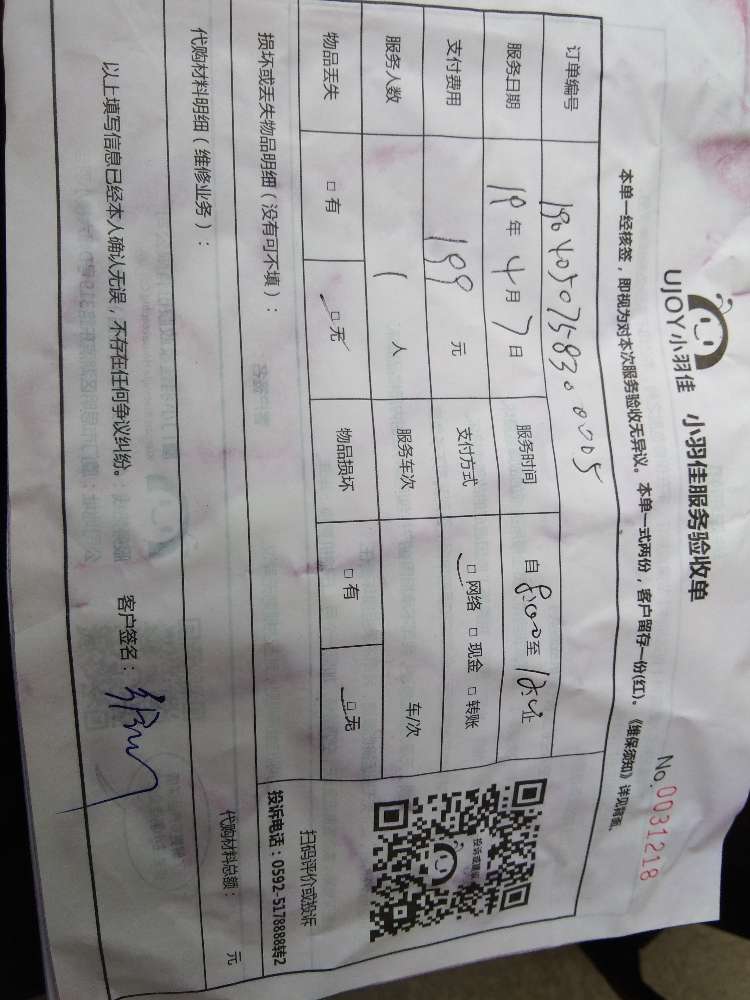 UJOY小羽佳 小羽佳服务验收单
No.0031218
本单一经核签，即视为对本次服务验收无异议。本单一式两份，客户留存一份(红)。《维保须知》详见背面。
订单编号
服务日期 19年4月7日 服务时间 自8:00至12:00止
支付费用 199元 支付方式 □网络 □现金 □转账
服务人数 1人 服务车次 车/次
物品丢失 □有 □无 物品损坏 □有 □无
投诉或建议
扫码评价或投诉
投诉电话：0592-5178888转2
损坏或丢失物品明细（没有可不填）：
代购材料明细（维修业务）：
代购材料总额： 元
以上填写信息已经本人确认无误，不存在任何争议纠纷。
客户签名：